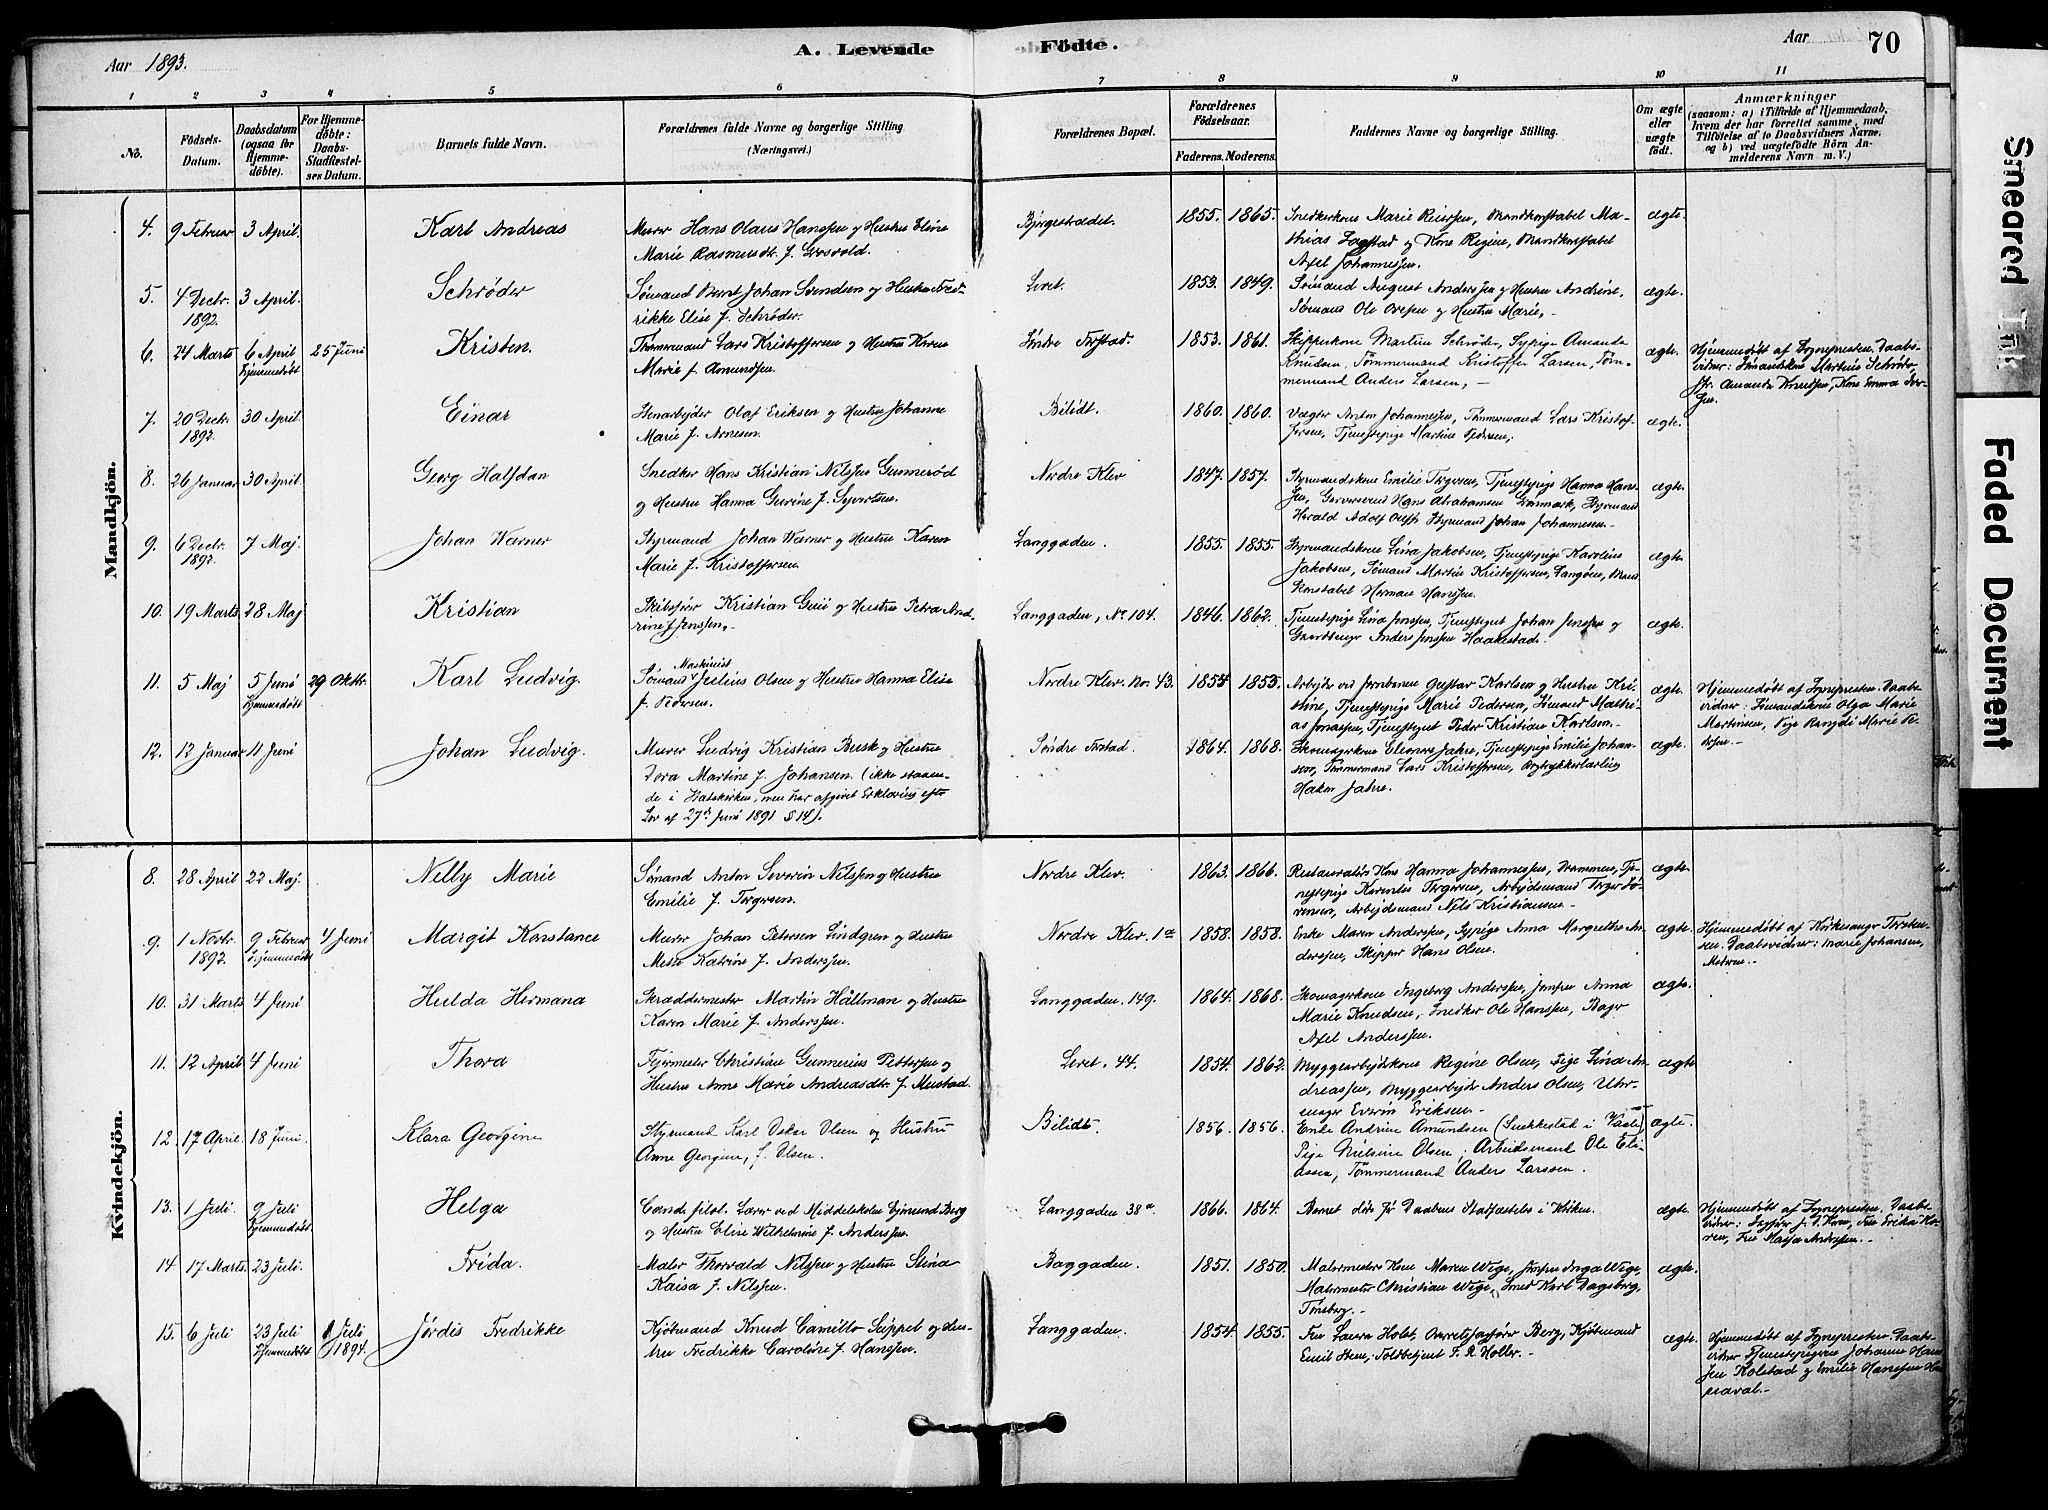 Aar 1893.
A. Levende
Födte.
Aar
70
1 2 3 4 5 6 7 8 9 10 11
No.
Födsels-Datum.
Daabsdatum (ogsaa for Hjemmedöbte).
For Hjemmedöbte: Daabs-Stadfæstelses Datum.
Barnets fulde Navn.
Forældrenes fulde Navne og borgerlige Stilling. (Næringsvei.)
Forældrenes Bopæl.
Forældrenes Födselsaar.
Faderens. Moderens.
Faddernes Navne og borgerlige Stilling.
Om ægte eller uægte födt.
Anmærkninger
(saasom: a) i Tilfælde af Hjemmedaab, hvem der har forrettet samme, med Tilföielse af to Daabsvidners Navne, og b) ved uægtefödte Börn Anmelderens Navn m. V.)
Mandkjön.
4. 9 Februar 3 April. Karl Andreas Murer Hans Olaus Hanssen og Hustru Eline 1855. 1865. Snedkerkone Marie Reiersen, Brandkonstabel Ma- ægte.
Marie Rasmusdtr. f. thias og Kone Regine, Brandkonstabel
Axel Johannessen.
5. 4 Decbr. 1892. 3 April. Schrøder Sømand Bernt Johan Svendsen og Hustru Fred- Løvet. 1853. 1849. Sømand August Anderssen og Hustru Andrine, ægte.
rikke Elise f. Schrøder. Sømand Ole Ovesen og Hustru Marie, -
6. 24 Marts 6 April Hjemmedöbt 25 Juni Kristen. Tømmermand Lars Kristoffersen og Hustru Karen Søndre 1853. 1861. Skipperkone Martine Schrøder, Sypige Amanda ægte. Hjemmedöbt af Sognepresten. Daabs-
Marie f. Amundsen. Knudsen, Tømmermand Kristoffer Larsen, Tøm- vidner: Sømandskone Martine Schrøder
mermand Anders Larsen, - Amanda Knudsen, Kone Emma
7. 20 Decbr. 1892. 30 April. Einar Stenarbejder Olaf Eriksen og Hustru Johanne Bilidt. 1860. 1860. Vægter Anton Johannessen, Tømmermand Lars Kristof- ægte.
Marie f. Arnesen. fersen, Tjenestepige Martine Pedersen,
8. 26 Januar 30 April. Georg Halfdan Snedker Hans Kristian Nilssen Gunnerød Nordre Klev 1847. 1857. Styrmandskone Emilie Torgersen, Tjenestepige Hanna Hans- ægte.
og Hustru Hanna f. Syvertsen. sen, Hans Abrahamsen Styrmand
Harald Adolf Styrmand Johan Johannessen.
9. 6 Decbr. 1892. 7 Maj. Johan Warner Styrmand Johan Warner og Hustru Karen Langgaden. 1855. 1855. Styrmandskone Lina Jakobsen, Tjenestepige Karoline ægte.
Marie f. Kristoffersen. Jakobsen, Sømand Martin Kristoffersen, Langøen, Brand
Konstabel Herman Hanssen.
10. 19 Marts 28 Maj Kristian Skibsfører Kristian og Hustru Petra And- Langgaden, No 104. 1846. 1862. Tjenestepige Lina Jenssen, Tjenestegut Johan Jenssen og ægte.
rine f. Jenssen. - Gaardbruger Anders Jenssen Haakestad.
11. 5 Maj 5 Juni Hjemmedöbt 29 Oktbr. Karl Ludvig. Maskinist
Sømand Julius Olsen og Hustru Hanna Elise Nordre Klev. No. 43. 1854 1855. Arbejder ved Jernbanen Gustav Karlsen og Hustru Kri- ægte. Hjemmedöbt af Sognepresten. Daabs-
f. Pedersen. stine, Tjenestepige Marie Pedersen, Sømand Mathi- vidner: Sømandskone Olga Marie
as Jonassen, Tjenestegut Peder Kristian Karlsen. Martinsen, Pige Marie
12. 12 Januar 11 Juni Johan Ludvig. Murer Ludvig Kristian Busk og Hustru Søndre 1864. 1868. Skomagerkone Eleonore Jahre, Tjenestepige Emilie Johan- ægte.
Dora Martine f. Johansen. (ikke staaen- sen, Tømmermand Lars Kristoffersen, Bogtrykkerlærling
de i Statskirken, men har afgivet Erklæring efter Hakon Jahre.
Lov af 27de Juni 1891 § 14).
Kvindekjön.
8. 28 April 22 Maj. Nelly Marie Sømand Anton Severin Nilssen og Hustru Nordre Klev. 1863. 1866. Restauratørs Kone Hanna Johannessen, Drammen, Tje- ægte.
Emilie f. Torgersen. nestepige Torgersen, Arbejdsmand Torger Sø-
rensen, Arbejdsmand Nils Kristiansen -
9. 1 Novbr. 1892. 9 Februar Hjemmedöbt 4 Juni Margit Konstance Murer Johan Petersen Lindgren og Hustru Nordre Klev. 1a 1858. 1858. Enke Maren Anderssen, Sypige Anna Margrethe An- ægte. Hjemmedöbt af Kirkesanger Torsten-
Mette Katrine f. Anderssen. derssen, Skipper Hans Olsen. sen. Daabsvidner: Marie Johansen,
Moderen. -
10. 31 Marts 4 Juni Hulda Hermana Skræddermester Martin Hållman og Hustru Langgaden. 149. 1864. 1868. Skomagerkone Ingeborg Anderssen, Jomfru Anna ægte.
Karen Marie f. Anderssen. Marie Knudsen, Snedker Ole Hanssen, Bager
Axel Anderssen.
11. 12 April 4 Juni Thora Christian Gunnerius Pettersen og Løvet. 44. 1854. 1862. Bryggearbejderkone Regine Olsen, Pige Lina An- ægte
Hustru Anne Marie Andreasdtr. f. dreassen, Bryggearbejder Anders Olsen, Uhr-
mager Everin Eriksen. -
12. 17 April. 18 Juni. Klara Georgine Styrmand Karl Oskar Olsen og Hustru Bilidt. 1856. 1856. Enke Andrine Amundsen (Snekkestad i Vaale) ægte.
Anne Georgine, f. Olsen. Pige Nielsine Olsen, Arbeidsmand Ole Eli-
assen, Tømmermand Anders Larssen.
13. 1 Juli. 9 Juli Hjemmedöbt. Helga Cand. filol. Lærer ved Middelskolen Ejmund Berg Langgaden 38a. 1866. 1864. Barnet døde før Daabens Stadfæstelse i Kirken. ægte. Hjemmedöbt af Sognepresten. Daabs-
og Hustru Elise Wilhelmine f. Anderssen. vidner:
ren, Fru Anderssen. -
14. 17 Marts. 23 Juli. Frida. Maler Thorvald Nilssen og Hustru Stina Baggaden. 1851. 1850. Malermesters Kone Maren Wege, Jomfru Inga Wege, ægte.
Kaisa f. Nilssen. Malermester Christian Wege, Smed Karl Dagsberg,
Tønsberg. -
15. 6 Juli 23 Juli Hjemmedöbt Juli 1894. Jørdis Fredrikke Kjøbmand Knud Camillo Seippel og Hu- Langgaden. 1854. 1855. Fru Laura Holst, Overretssagfører Berg, Kjøbmand ægte. Hjemmedöbt af Sognepresten. Daabs-
stru Fredrikke Caroline f. Hanssen. Emil Toldbetjent F. R. Holler. - vidner Tjenestepigerne Johanne Hans-
sen Kolstad og Emilie Hanssen
Smeared Ink
Faded Document